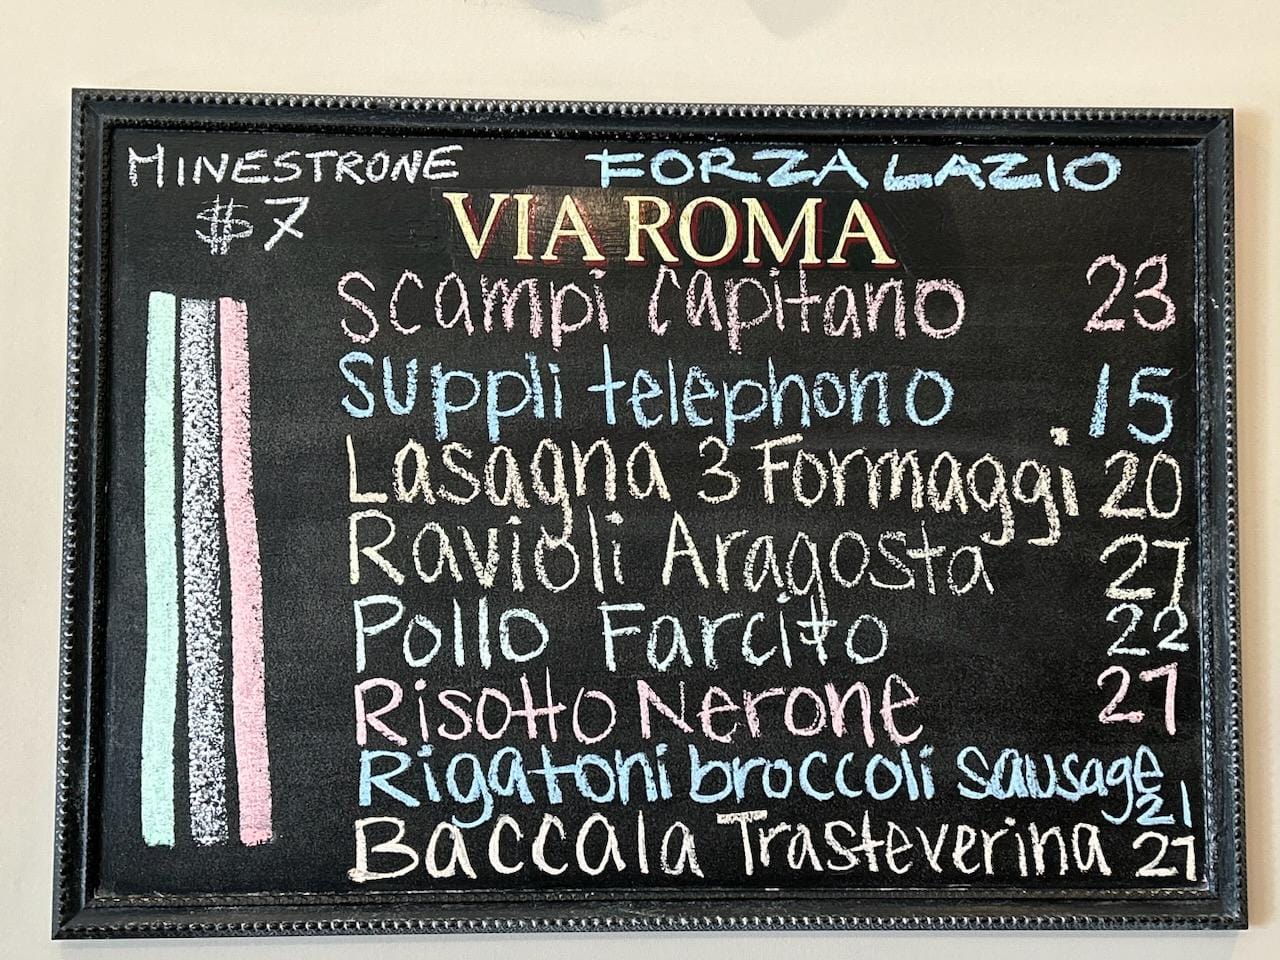 MINESTRONE
$7
FORZA LAZIO
VIA ROMA
Scampi Capitano 23
Suppli telephono 15
Lasagna 3 Formaggi 20
Ravioli Aragosta 27
Pollo Farcito 22
Risotto Nerone 27
Rigatoni broccoli sausage 21
Baccala Trasteverina 27